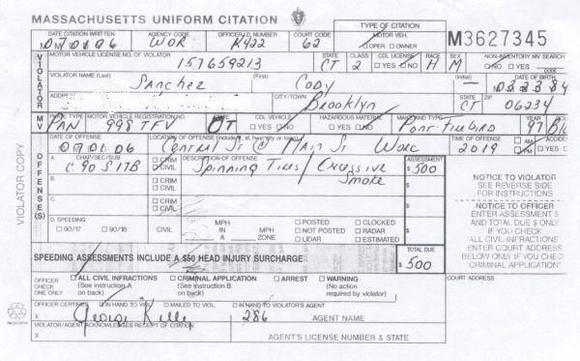 MASSACHUSETTS UNIFORM CITATION
TYPE OF CITATION
DATE OF CITATION AGENCY CODE OFFICER I.D. NUMBER COURT CODE MOTOR VEH.
070106 WOR K422 62 OPER OWNER
M3627345
MOTOR VEHICLE LICENSE NO. OF VIOLATOR ST CLASS CDL LICENSE RACE SEX NON-INVENTORY MV SEARCH
157659213 CT 2 YES NO H M YES NO
VIOLATOR NAME (Last) (First) (Initial) DATE OF BIRTH
Sanchez Cody 022384
CITY/TOWN ST ZIP
Brooklyn CT 06234
VIOLATOR
PLATE TYPE MOTOR VEHICLE REGISTRATION NO. ST CDL VEHICLE HAZARDOUS MATERIAL
MV PAN 998TFU CT YES NO YES NO Pont-Firebird 97
DATE OF OFFENSE TIME OF OFFENSE
070106 Central St @ Main St Worc 2019 AM PM
OFFENSE(S)
CHAP/SEC/SUB DESCRIPTION OF OFFENSE ASSESSMENT
A C 90 S 17B CRIM CIVIL Spinning Tires/Excessive Smoke $500
B CRIM CIVIL
C CRIM CIVIL
NOTICE TO VIOLATOR
SEE REVERSE SIDE
FOR INSTRUCTIONS
NOTICE TO OFFICER
ENTER ASSESSMENT S
AND TOTAL DUE $ ONLY
IF YOU CHECK
"ALL CIVIL INFRACTIONS"
ENTER COURT ADDRESS
BELOW ONLY IF YOU CHECK
"CRIMINAL APPLICATION"
D. SPEEDING MPH MPH POSTED CLOCKED
90/17 90/18 CIVIL IN A ZONE NOT POSTED RADAR
LIDAR ESTIMATED
SPEEDING ASSESSMENTS INCLUDE A $50 HEAD INJURY SURCHARGE
TOTAL DUE
$500
OFFICER CHECK ONE ONLY
ALL CIVIL INFRACTIONS CRIMINAL APPLICATION ARREST WARNING
(See instruction A on back) (See instruction B on back) (No action required by violator)
COURT ADDRESS
OFFICER CERTIFIES IN HAND TO VIOL. MAILED TO VIOL. IN HAND TO VIOLATOR'S AGENT
X 286 AGENT NAME
VIOLATOR/AGENT ACKNOWLEDGES RECEIPT OF CITATION
X AGENT'S LICENSE NUMBER & STATE
VIOLATOR COPY